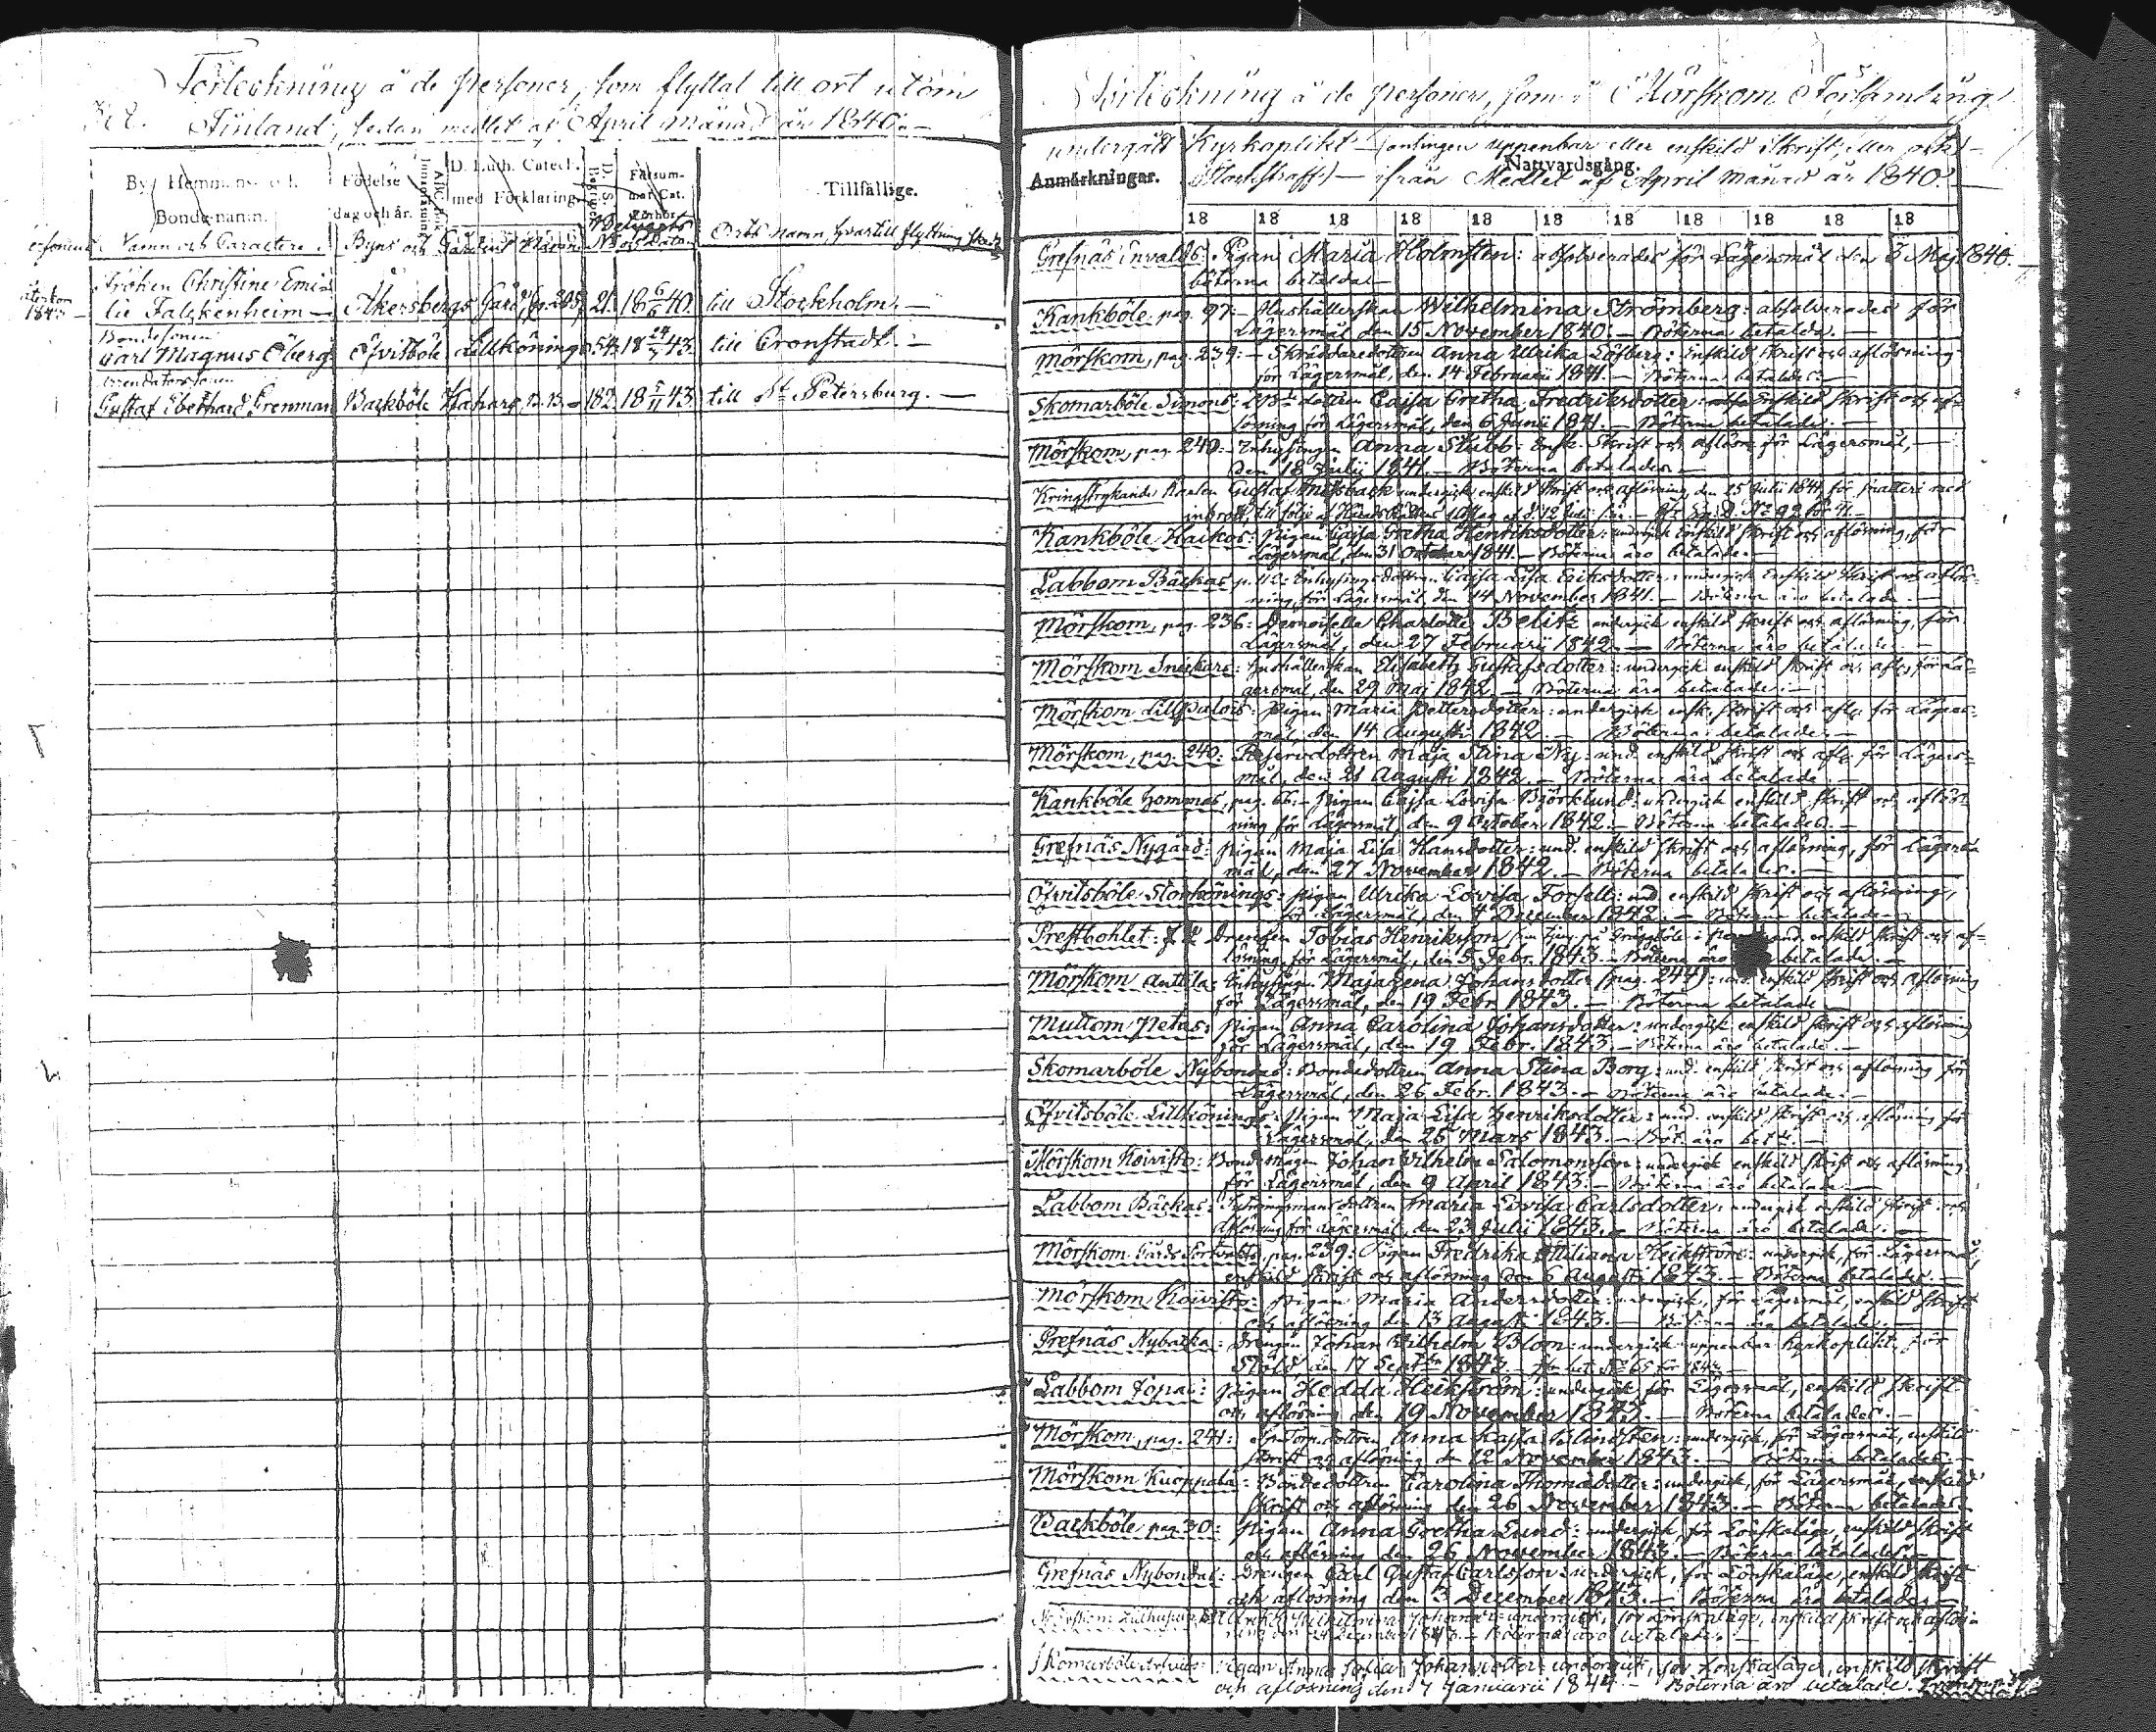 Förteckning å de personer, som flyttat till ort utom
Finland, sedan medlet af April månad år 1840.
By, Hemmans- och
Bonde-namn.
Födelse
dag och år.
D. Luth. Catech.
med Förklaring
Försum-
mat Cat.
Förhör.
Tillfällige.
Namn och Caractere
Byns och Gårdens Namn
Betygets
N:o och Data
Orts namn, hvartill flyttning skedt
återkom
184
Fröken Christine Emi-
lie Falckenheim
Åkersbergs Gård, pag. 205,
21. 18 6/6 40.
till Stockholm. —
Bondesonen
Carl Magnus Öberg
Öfvitsböle Lillkönings
54. 18 24/5 43.
till Cronstadt. —
Arrendatorssonen
Gustaf Eberhard Grenman
Backböle
182. 18 7/11 43.
till St Petersburg. —
Förteckning å de personer, som i Mörskom Församling
undergått Kyrkoplikt — (antingen uppenbar eller enskild skrift, eller ock
Nattvardsgång.
Anmärkningar.
Stockstraff) — ifrån Medlet af April månad år 1840. —
18 18 18 18 18 18 18 18 18 18 18
Grefnäs Invalds: Pigan Maria Holmsten: absolverades för Lägersmål den 3 Maj 1840. —
böterna betalda. —
Kankböle, pag. 97: Hushållerskan Wilhelmina Strömberg: absolverades för
Lägersmål den 15 November 1840. — Böterna betalde. —
Mörskom, pag. 239: — Skräddaredottren Anna Ulrika Löfberg: enskild skrift och aflösning
för Lägersmål, den 14 Februarii 1841. — Böterna betaldes. —
Skomarböle Simons: dottren Cajsa Gretha Fredriksdotter: enskild skrift och af-
lösning för Lägersmål, den 6 Junii 1841. — Böterna betalades. —
Mörskom, pag. 240: Inhysingen Anna Stubb: Ensk. Skrift och aflösn. för Lägersmål, —
den 18 Julii 1841. — Böterna betalades. —
Kringstrykande Karlen Gustaf undergick enskild skrift och aflösning den 25 Julii 1841, för snatteri med
inbrott, till följe af Härads Rättens
Kankböle Haikos: Pigan Cajsa Gretha Henriksdotter: undergick enskild skrift och aflösning, för
Lägersmål, den 31 October 1841. — Böterna äro betalade. —
Labbom Bäckas, p. 112: Inhysingsdottren Cajsa Lisa Eriksdotter: undergick enskild skrift och aflös-
ning för Lägersmål, den 14 November 1841. — Böterna äro betalade. —
Mörskom, pag. 236: Demoiselle Charlotte Belitz undergick enskild skrift och aflösning, för
Lägersmål, den 27 Februarii 1842. — Böterna äro betalade. —
Mörskom Snickars: Hushållerskan Elisabeth Gustafsdotter: undergick enskild skrift och afl., för Lä-
gersmål, den 29 Maj 1842. — Böterna äro betalade. —
Mörskom: Pigan Maria Pettersdotter: undergick ensk. skrift och afl. för Lägers-
mål, den 14 Augusti 1842. — Böterna betalades —
Mörskom, pag. 240: dottren Maja Stina Ny: und. enskild skrift och afl. för Lägers-
mål, den 21 Augusti 1842. — Böterna äro betalade. —
Kankböle Hommas, pag. 66: — Pigan Cajsa Lovisa Björklund: undergick enskild skrift och aflös-
ning för Lägersmål, den 9 October 1842. — Böterna betalades. —
Grefnäs Nygård: Pigan Maja Lisa Hansdotter: und. enskild skrift och aflösning, för Lägers-
mål, den 27 November 1842. — Böterna betalades. —
Öfvitsböle Storkönings: Pigan Ulrika Lovisa Forsell: und. enskild skrift och aflösning,
för Lägersmål, den 4 December 1842. — Böterna betalades —
Prestbohlet: Drengen Tobias Henriksson und. enskild skrift och af-
lösning för Lägersmål, den 5 Febr. 1843. — Böterna äro betalade. —
Mörskom Anttila: Inhysingen Maja Lena Johansdotter (pag. 244): und. enskild skrift och aflösning
för Lägersmål, den 19 Febr. 1843. — Böterna betalade —
Multom Petas: Pigan Anna Carolina Johansdotter: undergick enskild skrift och aflösning
för Lägersmål, den 19 Febr. 1843. — Böterna äro betalade. —
Skomarböle Nybondas: Bondedottren Anna Stina Borg: und. enskild skrift och aflösning för
Lägersmål, den 26 Febr. 1843. — Böterna äro betalade. —
Öfvitsböle Lillkönings: Pigan Maja Lisa Henriksdotter: und. enskild skrift och aflösning för
Lägersmål, den 25 Mars 1843. — Böt. äro bet. —
Mörskom Koivisto: Bondemågen Johan Wilhelm Salomonsson: undergick enskild skrift och aflösning
för Lägersmål, den 9 April 1843. — Böterna äro betalade —
Labbom Bäckas: dottren Maria Lovisa Carlsdotter: undergick enskild skrift och
aflösning för Lägersmål, den 23 Julii 1843. — Böterna äro betalade. —
Mörskom, pag. 239: Pigan Fredrika Heikström: undergick, för Lägersmål,
enskild skrift och aflösning den 6 Augusti 1843. — Böterna betalades. —
Mörskom Koivisto: Pigan Maria Andersdotter: undergick, för Lägersmål, enskild skrift
och aflösning den 13 Augusti 1843. — Böterna äro betalade. —
Grefnäs Nybacka: Drengen Johan Wilhelm Blom: undergick uppenbar Kyrkoplikt, för
Stöld den 17 Sept. 1843.
Labbom Jopas: Pigan Hedda Heikström: undergick för Lägersmål, enskild skrift
och aflösning den 19 November 1843. — Böterna betalades. —
Mörskom, pag. 241: dottren Anna Kajsa Blindsten: undergick, för Lägersmål, enskild
skrift och aflösning den 12 November 1843. — Böterna betalades. —
Mörskom Kuoppala: Bondedottren Carolina Thomasdotter: undergick, för Lägersmål, enskild
skrift och aflösning den 26 November 1843. — Böterna betalades
Backböle, pag. 30: Pigan Anna Gretha Lund: undergick, för Lönskaläge, enskild skrift
och aflösning den 26 November 1843. — Böterna betalades. —
Grefnäs Nybondas: Drengen Carl Gustaf Carlsson: undergick, för Lönskaläge, enskild skrift
och aflösning den 3 December 1843. — Böterna äro betalade —
undergick, för Lönskaläge, enskild skrift och aflös-
ning den 24 December 1843. — Böterna äro betalade. —
Skomarböle: Pigan Anna Sofia Johansdotter: undergick, för Lönskaläge, enskild skrift
och aflösning den 7 Januarii 1844 — Böterna äro betalade.